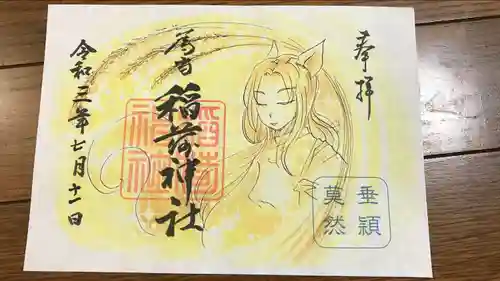 奉拝
稲荷神社
令和三年七月十一日
稲荷
神社
垂穎
莫然